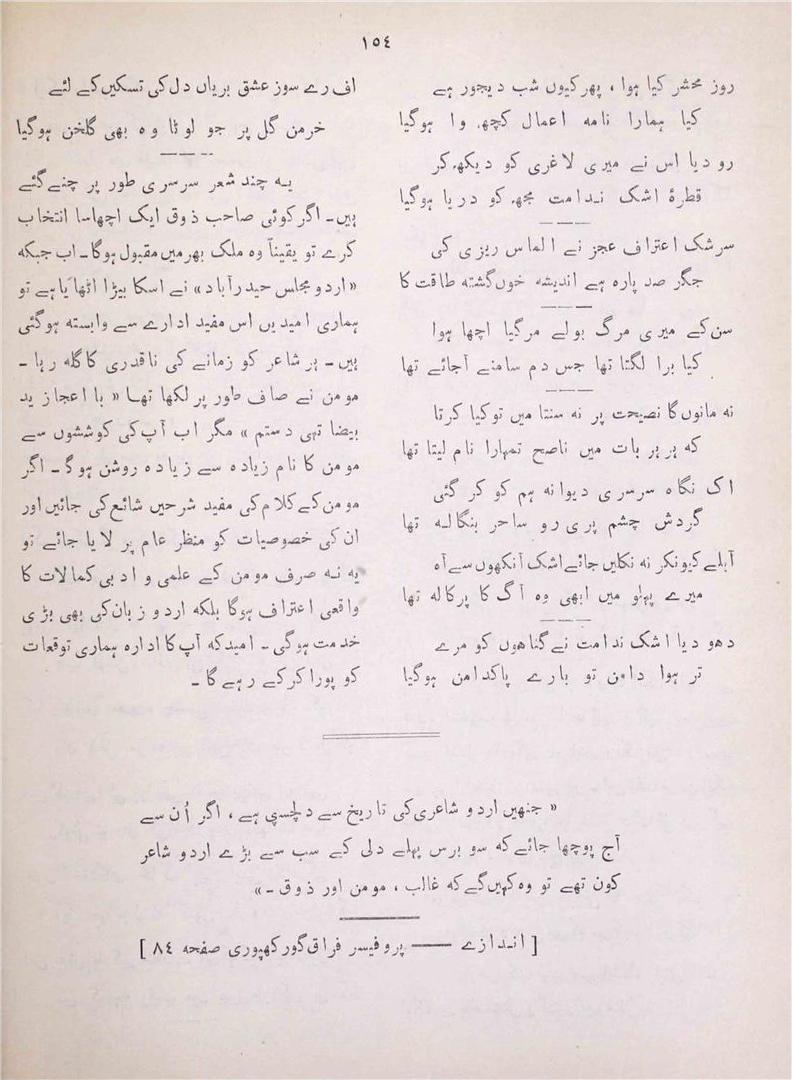 ١٥٤
روز محشر کیا ہوا ، پھر کیوں شب دیجور ہے
کیا ہمارا نامہ اعمال کچھ وا ہوگیا
رو دیا اس نے میری لاغری کو دیکھ کر
قطرۂ اشک ندامت مجھ کو دریا ہوگیا
سرشک اعتراف عجز نے الماس ریزی کی
جگر صد پارہ ہے اندیشہ خوں گشتہ طاقت کا
سن کے میری مرگ بولے مرگیا اچھا ہوا
کیا برا لگتا تھا جس دم سامنے آجائے تھا
نہ مانوں گا نصیحت پر نہ سنتا میں تو کیا کرتا
کہ ہر ہر بات میں ناصح تمہارا نام لیتا تھا
اک نگاہ سرسری دیوانہ ہم کو کر گئی
گردش چشم پری رو ساحر بنگالہ تھا
آبلے کیونکر نہ نکلیں جائے اشک آنکھوں سے آہ
میرے پہلو میں ابھی وہ آگ کا پرکالہ تھا
دھو دیا اشک ندامت نے گناہوں کو مرے
تر ہوا دامن تو بارے پاکدامن ہوگیا
اف رے سوز عشق بریاں دل کی تسکیں کے لئے
خرمن گل پر جو لوٹا وہ بھی گلخن ہوگیا
یہ چند شعر سرسری طور پر چنے گئے
ہیں۔ اگر کوئی صاحب ذوق ایک اچھا سا انتخاب
کرے تو یقیناً وہ ملک بھر میں مقبول ہوگا۔ اب جبکہ
«اردو مجلس حیدرآباد» نے اسکا بیڑا اٹھایا ہے تو
ہماری امیدیں اس مفید ادارے سے وابستہ ہوگئی
ہیں۔ ہر شاعر کو زمانے کی ناقدری کا گلہ رہا ۔
مومن نے صاف طور پر لکھا تھا « با اعجاز ید
بیضا تہی دستم » مگر اب آپ کی کوششوں سے
مومن کا نام زیادہ سے زیادہ روشن ہوگا۔ اگر
مومن کے کلام کی مفید شرحیں شائع کی جائیں اور
ان کی خصوصیات کو منظر عام پر لایا جائے تو
یہ نہ صرف مومن کے علمی و ادبی کمالات کا
واقعی اعتراف ہوگا بلکہ اردو زبان کی بھی بڑی
خدمت ہوگی ۔ امید کہ آپ کا ادارہ ہماری توقعات
کو پورا کرکے رہے گا ۔
« جنھیں اردو شاعری کی تاریخ سے دلچسپی ہے ، اگر اُن سے
آج پوچھا جائے کہ سو برس پہلے دلی کے سب سے بڑے اردو شاعر
کون تھے تو وہ کہیں گے کہ غالب ، مومن اور ذوق ۔»
[ اندازے —— پروفیسر فراق گورکھپوری صفحہ ٨٤ ]